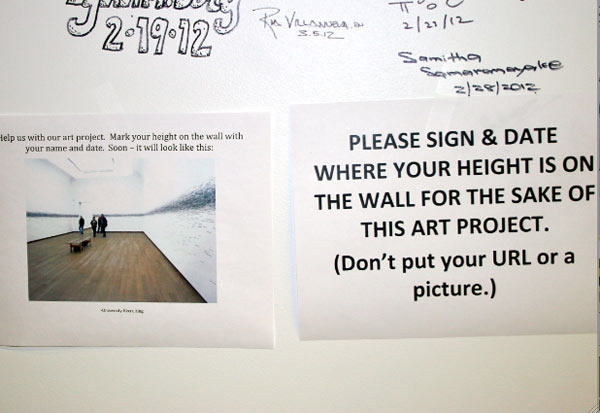 2·19·12
3.5.12
2/21/12
Samitha
2/28/2012
Help us with our art project. Mark your height on the wall with
your name and date. Soon – it will look like this:
PLEASE SIGN & DATE
WHERE YOUR HEIGHT IS ON
THE WALL FOR THE SAKE OF
THIS ART PROJECT.
(Don't put your URL or a
picture.)